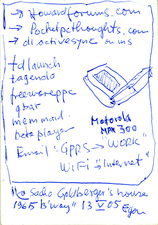 → Howardforums.com
→ Pocketpcthoughts.com
→ activesync
tdlaunch
tagendo
freewareppc
gbar
mem maid
beta player
Motorola
MPX 300
Email: "GPRS → WORK"
WiFi = "Internet"
Sadie Goldberger's house
1965 B'way 13 V 05 Egon